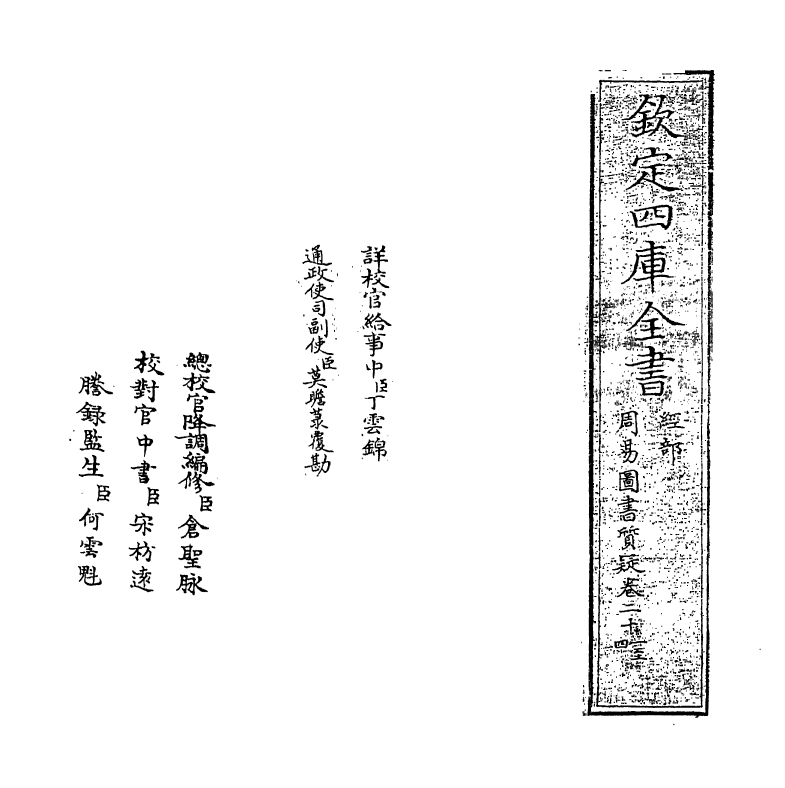 欽定四庫全書
經部
周易圖書質疑卷二十一至四
詳校官給事中臣丁雲錦
通政使司副使臣莫瞻菉覆勘
總校官降調編修臣倉聖脉
校對官中書臣宋枋遠
謄錄監生臣何雲魁